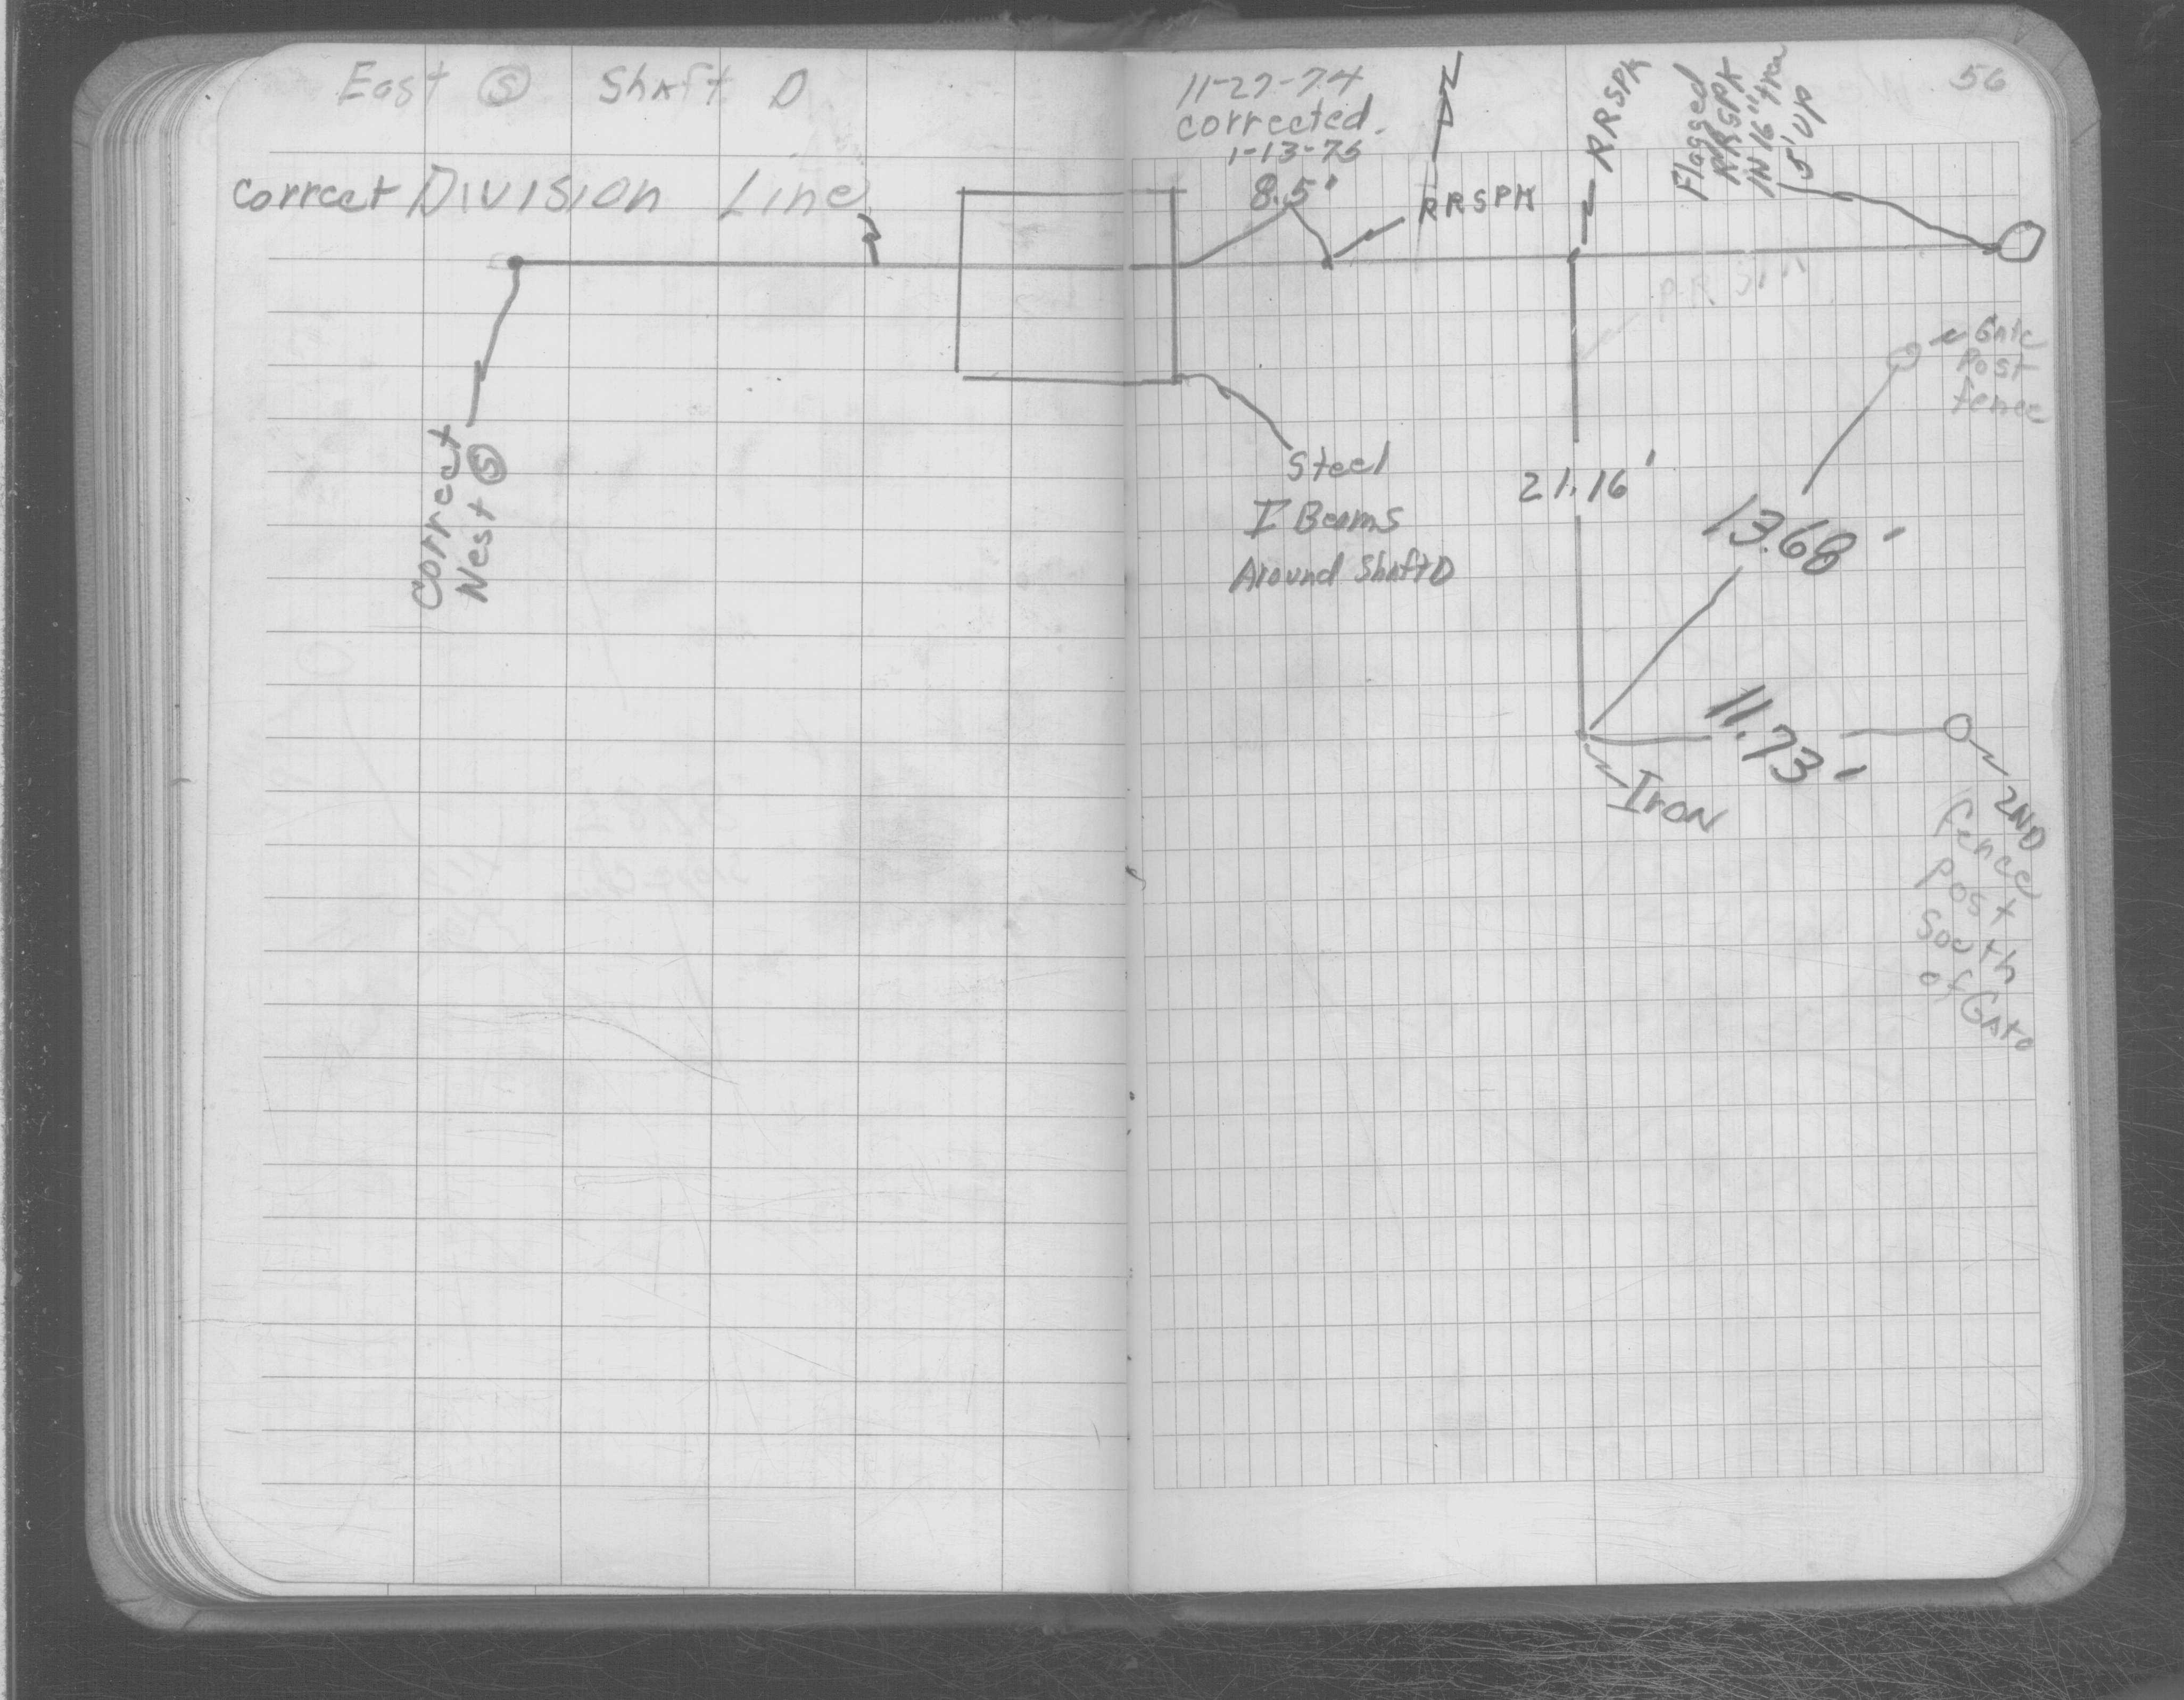 East Ⓢ Shaft D
11-27-74
corrected.
1-13-75
56
correct Division Line
8.5'
N
RRSPK
RRSPK
Flagged
RRSPK
IN 16" tree
5' UP
Gate
Post
fence
Correct
West Ⓢ
Steel
I Beams
Around Shaft D
21.16'
13.68'
11.73'
Iron
2ND
fence
post
South
of Gate